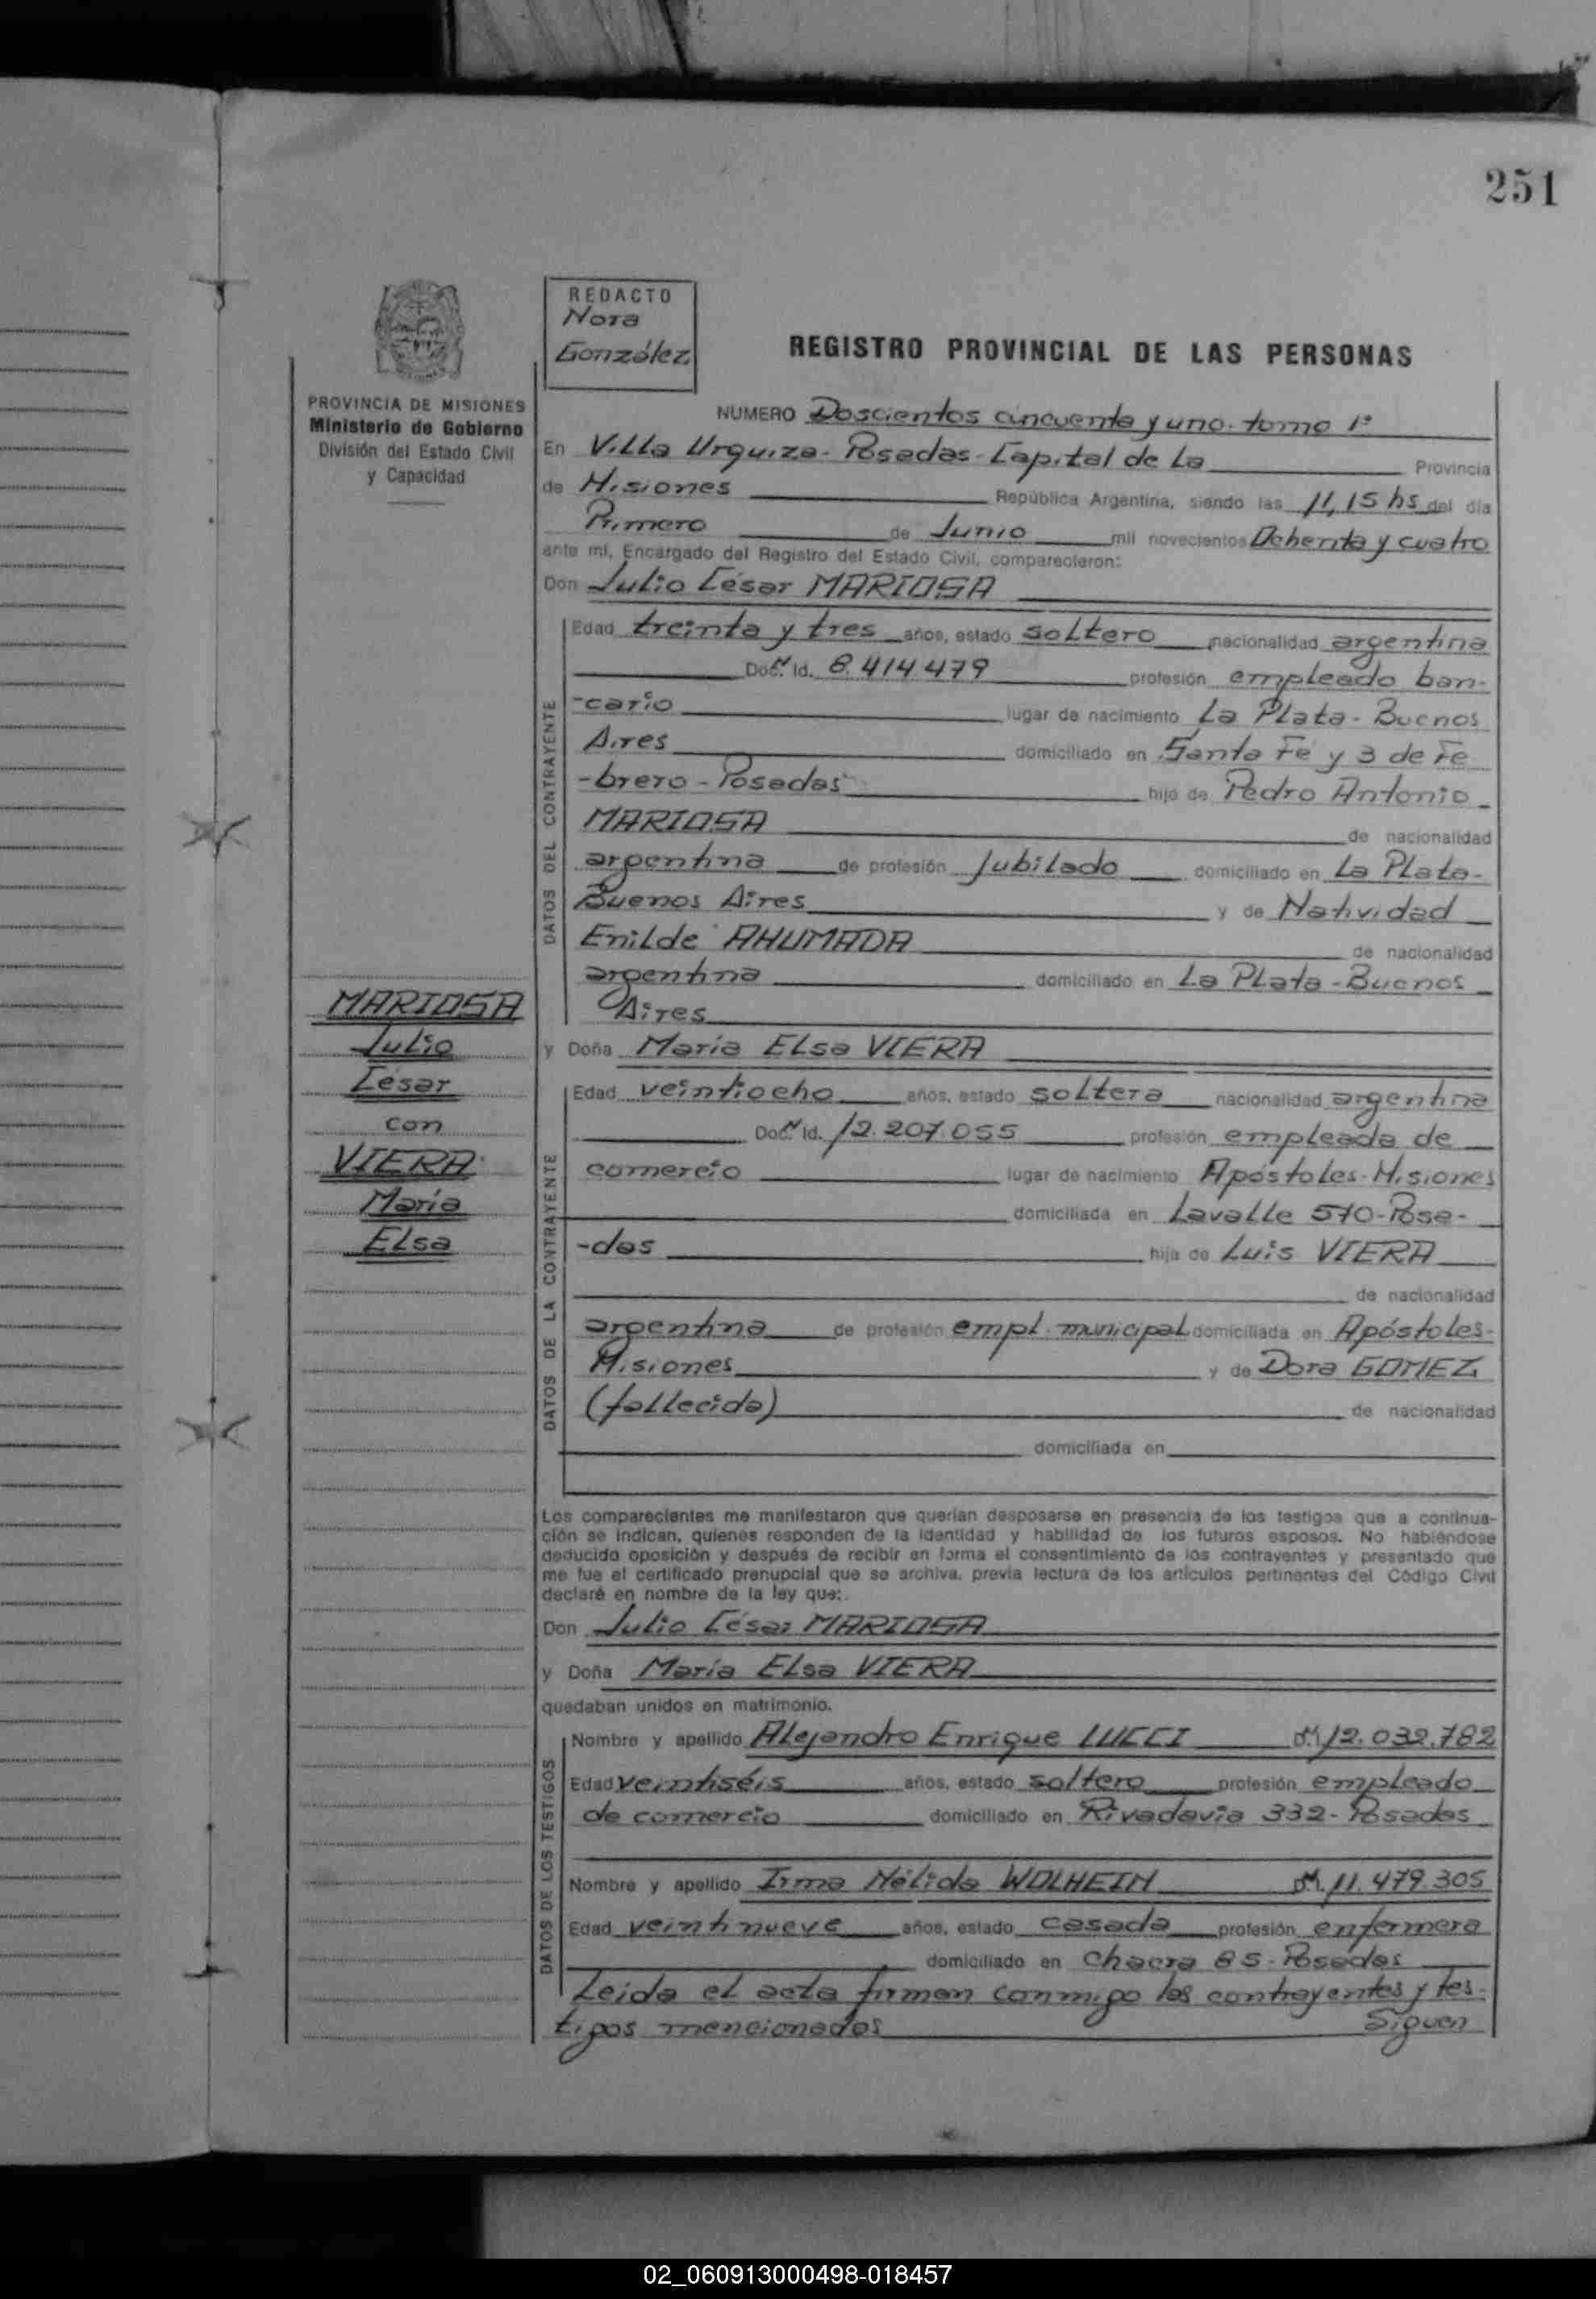 251
REDACTO
Nora
González
REGISTRO PROVINCIAL DE LAS PERSONAS
PROVINCIA DE MISIONES
Ministerio de Gobierno
División del Estado Civil
y Capacidad
NUMERO Doscientos cincuenta y uno. tomo 1º
En Villa Urquiza - Posadas - Capital de La Provincia
de Misiones República Argentina, siendo las 11,15 hs del día
Primero de Junio mil novecientos Ochenta y cuatro
ante mí, Encargado del Registro del Estado Civil, comparecieron:
Don Julio César MARIOSA
DATOS DEL CONTRAYENTE
Edad treinta y tres años, estado soltero nacionalidad argentina
Doc. Id. 8.414.479 profesión empleado ban-
-cario lugar de nacimiento La Plata - Buenos
Aires domiciliado en Santa Fe y 3 de Fe
-brero - Posadas hijo de Pedro Antonio
MARIOSA de nacionalidad
argentina de profesión Jubilado domiciliado en La Plata-
Buenos Aires y de Natividad
Enilde AHUMADA de nacionalidad
argentina domiciliado en La Plata - Buenos
Aires
MARIOSA
Julio
César
con
VIERA
María
Elsa
y Doña María Elsa VIERA
DATOS DE LA CONTRAYENTE
Edad veintiocho años, estado soltera nacionalidad argentina
Doc. Id. 12.207.055 profesión empleada de
comercio lugar de nacimiento Apóstoles - Misiones
domiciliada en Lavalle 570 - Posa-
-das hija de Luis VIERA
de nacionalidad
argentina de profesión empl. municipal domiciliada en Apóstoles -
Misiones y de Dora GOMEZ
(fallecida) de nacionalidad
domiciliada en
Los comparecientes me manifestaron que querían desposarse en presencia de los testigos que a continua-
ción se indican, quienes responden de la identidad y habilidad de los futuros esposos. No habiéndose
deducido oposición y después de recibir en forma el consentimiento de los contrayentes y presentado que
me fue el certificado prenupcial que se archiva, previa lectura de los artículos pertinentes del Código Civil
declaré en nombre de la ley que:
Don Julio César MARIOSA
y Doña María Elsa VIERA
quedaban unidos en matrimonio.
DATOS DE LOS TESTIGOS
Nombre y apellido Alejandro Enrique LUCCI 12.032.782
Edad veintiséis años, estado soltero profesión empleado
de comercio domiciliado en Rivadavia 332 - Posadas
Nombre y apellido Irma Nélida WOLHEIN 11.479.305
Edad veintinueve años, estado casada profesión enfermera
domiciliado en Chacra 85 - Posadas
Leida el acta firman conmigo los contrayentes y tes-
tigos mencionados Siguen
02_060913000498-018457